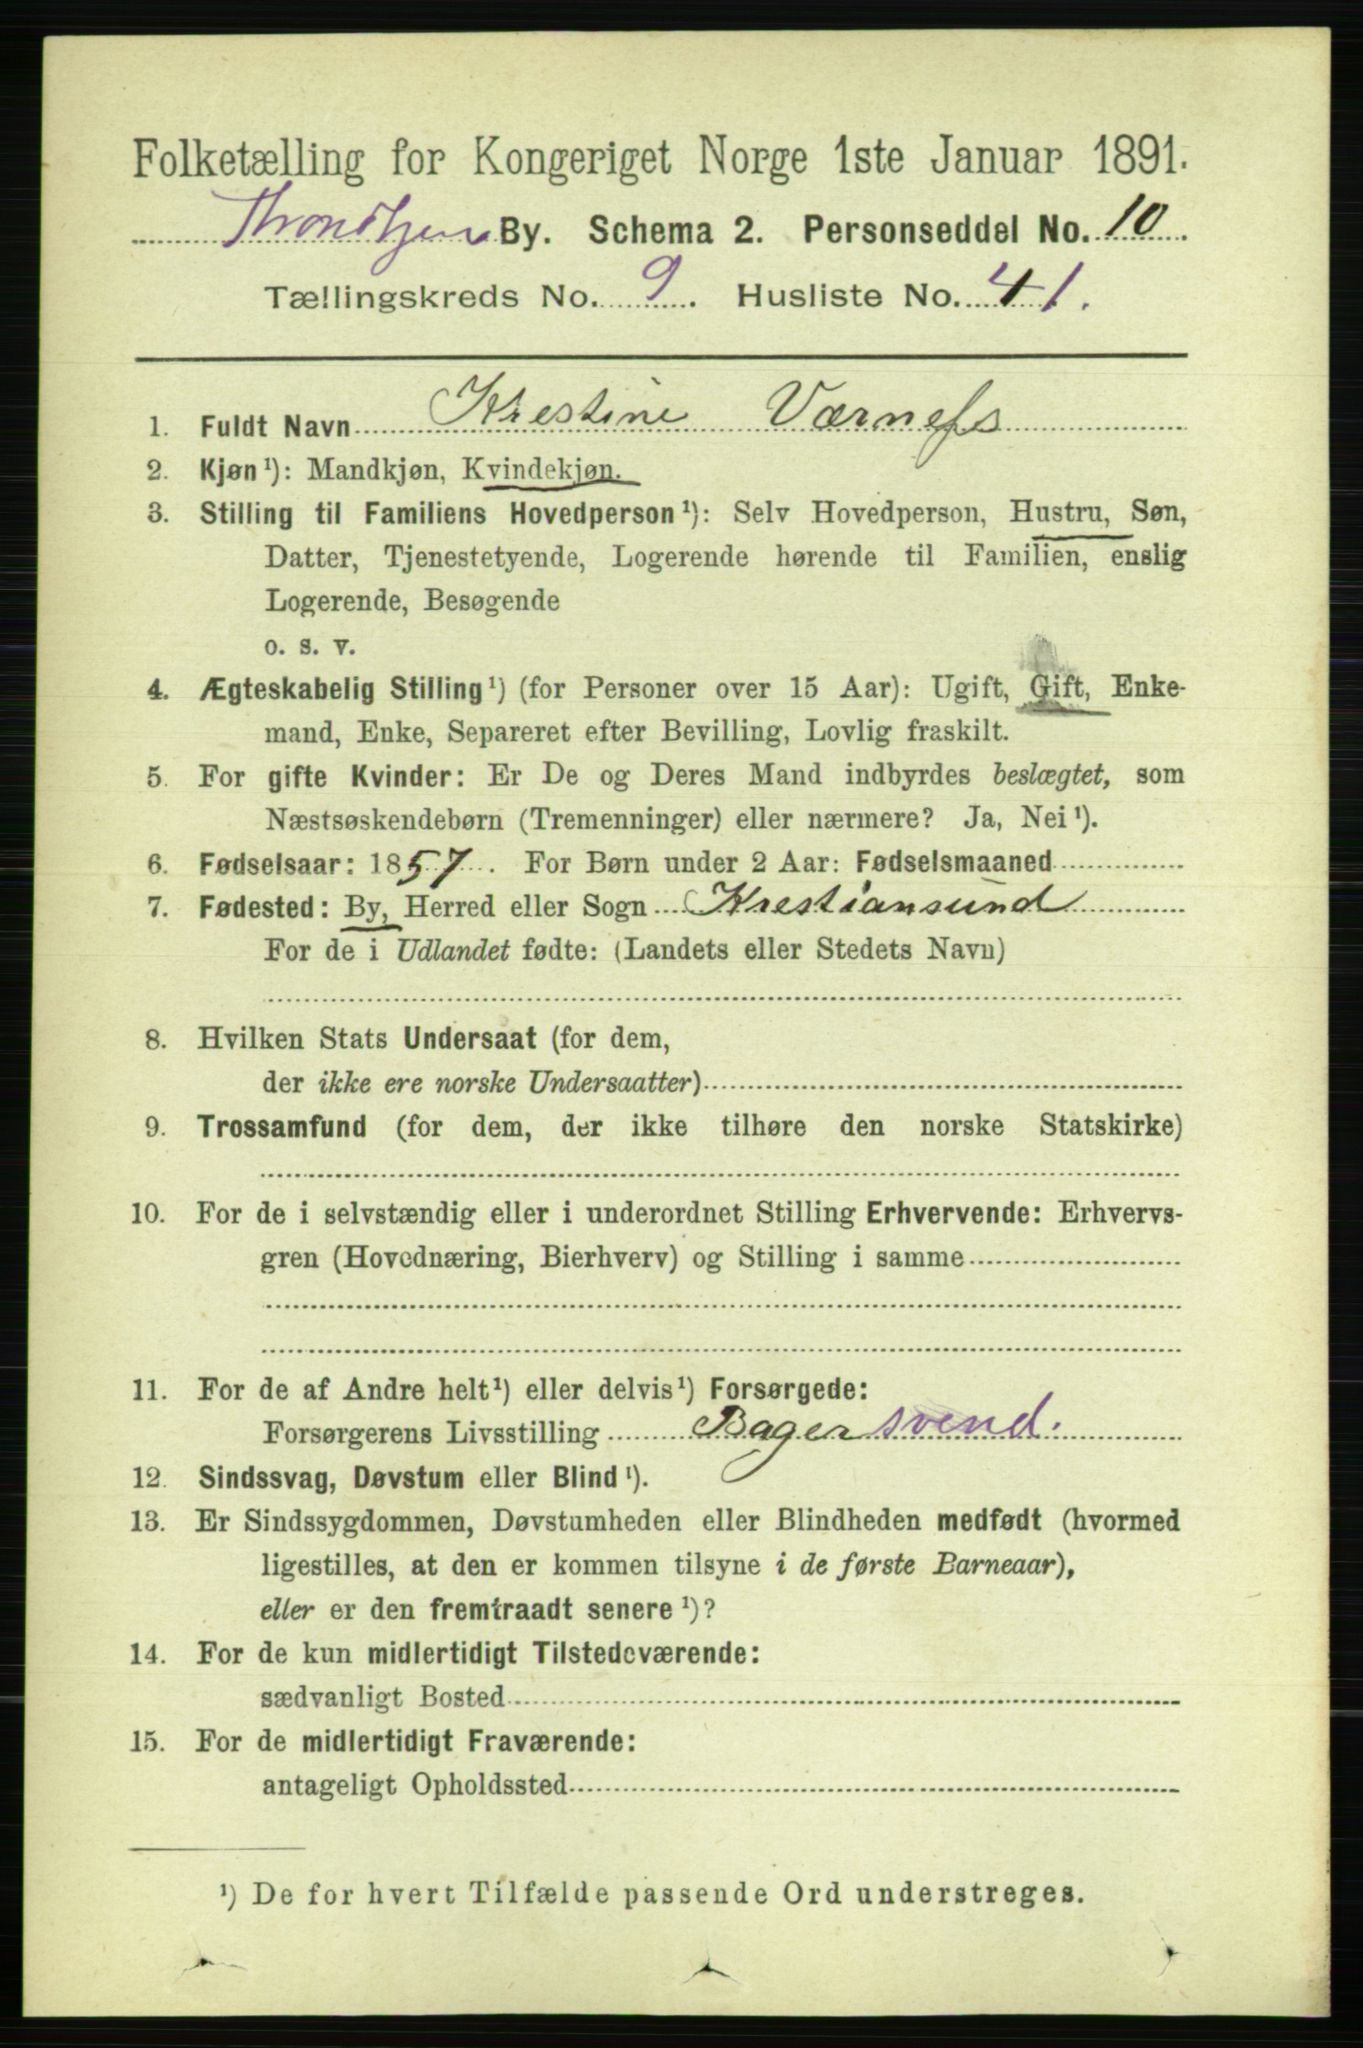 Folketælling for Kongeriget Norge 1ste Januar 1891.
Throndhjem By. Schema 2. Personseddel No. 10.
Tællingskreds No. 9. Husliste No. 41.
1. Fuldt Navn Krestine Værnefs
2. Kjøn¹): Mandkjøn, Kvindekjøn.
3. Stilling til Familiens Hovedperson¹): Selv Hovedperson, Hustru, Søn,
Datter, Tjenestetyende, Logerende hørende til Familien, enslig
Logerende, Besøgende
o. s. v.
4. Ægteskabelig Stilling¹) (for Personer over 15 Aar): Ugift, Gift, Enke-
mand, Enke, Separeret efter Bevilling, Lovlig fraskilt.
5. For gifte Kvinder: Er De og Deres Mand indbyrdes beslægtet, som
Næstsøskendebørn (Tremenninger) eller nærmere? Ja, Nei¹).
6. Fødselsaar: 1857. For Børn under 2 Aar: Fødselsmaaned
7. Fødested: By, Herred eller Sogn Krestiansund
For de i Udlandet fødte: (Landets eller Stedets Navn)
8. Hvilken Stats Undersaat (for dem,
der ikke ere norske Undersaatter)
9. Trossamfund (for dem, der ikke tilhøre den norske Statskirke)
10. For de i selvstændig eller i underordnet Stilling Erhvervende: Erhvervs-
gren (Hovednæring, Bierhverv) og Stilling i samme
11. For de af Andre helt¹) eller delvis¹) Forsørgede:
Forsørgerens Livsstilling Bagersvend.
12. Sindssvag, Døvstum eller Blind¹).
13. Er Sindssygdommen, Døvstumheden eller Blindheden medfødt (hvormed
ligestilles, at den er kommen tilsyne i de første Barneaar),
eller er den fremtraadt senere¹)?
14. For de kun midlertidigt Tilstedeværende:
sædvanligt Bosted
15. For de midlertidigt Fraværende:
antageligt Opholdssted
¹) De for hvert Tilfælde passende Ord understreges.